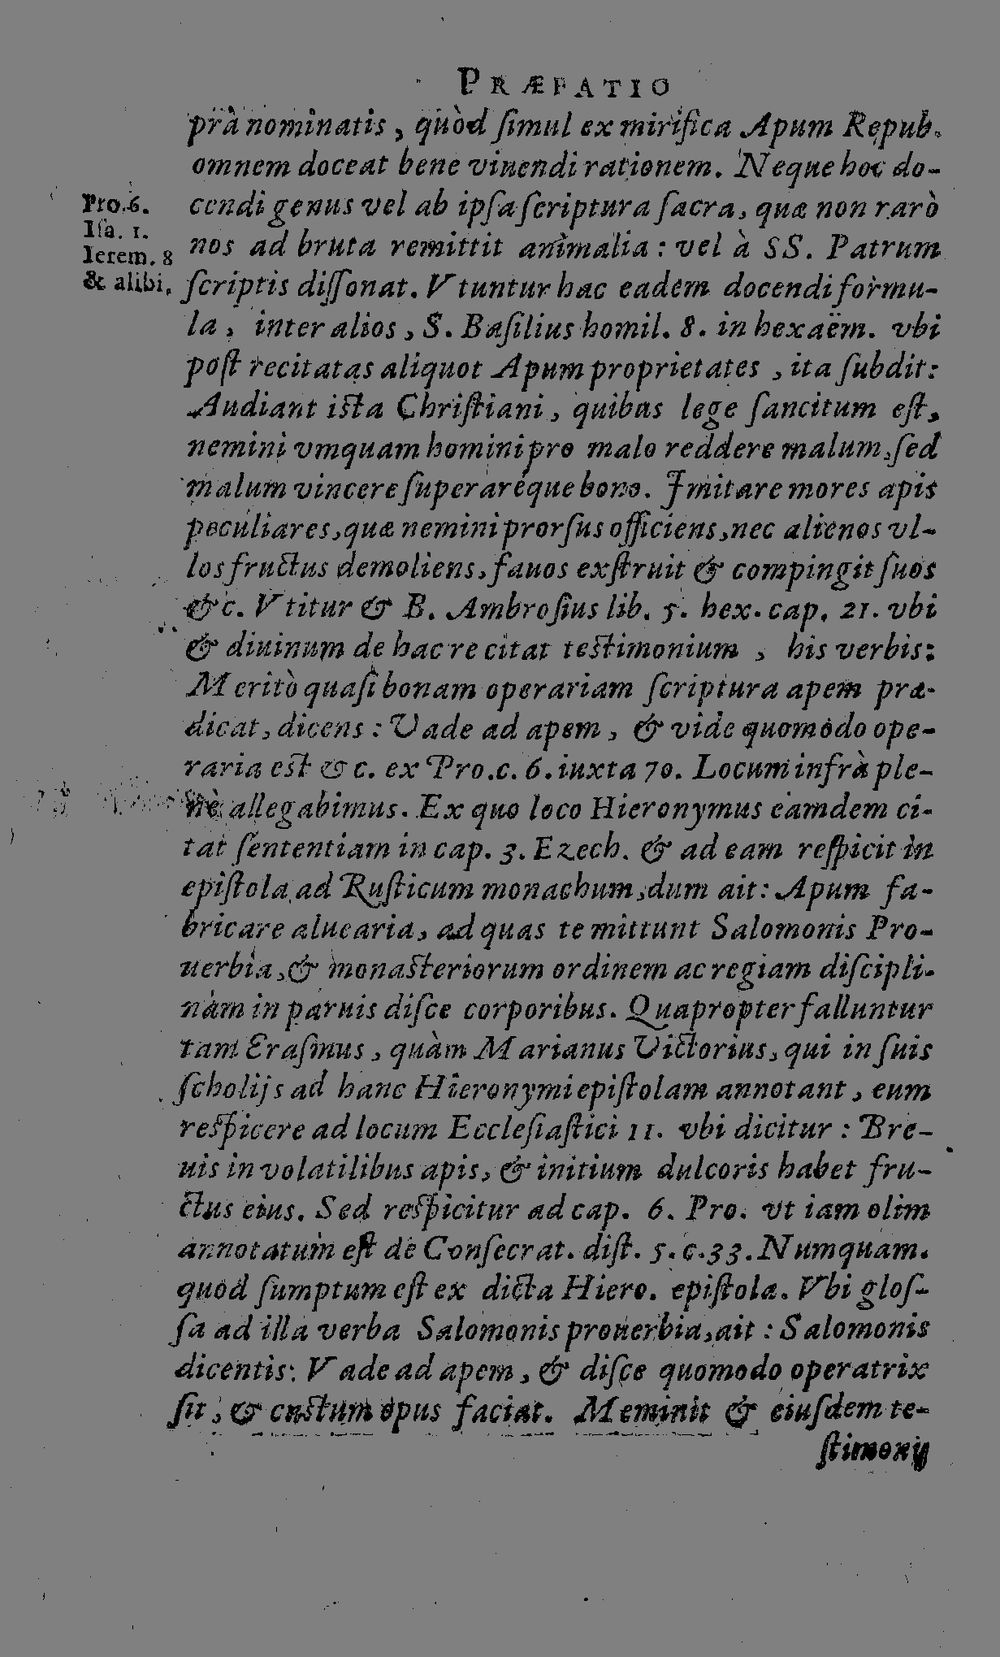 PRÆFATIO
prànominatis, quòd ſimul ex mirifica Apum Repub.
omnem doceat bene viuendi rationem. Neque hoc do-
cendi genus vel ab ipſa ſcriptura ſacra, quæ non rarò
Pro.6.
Iſa. 1.
Ierem. 8
& alibi.
nos ad bruta remittit animalia: vel à SS. Patrum
ſcriptis diſſonat. Vtuntur hac eadem docendi formu-
la, inter alios, S. Baſilius homil. 8. in hexaëm. vbi
poſt recitatas aliquot Apum proprietates, ita ſubdit:
Audiant iſta Chriſtiani, quibus lege ſancitum eſt,
nemini vmquam homini pro malo reddere malum, ſed
malum vincere ſuperaréque bono. Imitare mores apis
peculiares, quæ nemini prorſus officiens, nec alienos vl-
los fructus demoliens, fauos exſtruit & compingit ſuos
&c. Vtitur & B. Ambroſius lib. 5. hex. cap. 21. vbi
& diuinum de hac re citat teſtimonium, his verbis:
Meritò quaſi bonam operariam ſcriptura apem præ-
dicat, dicens: Vade ad apem, & vide quomodo ope-
raria eſt &c. ex Pro.c. 6. iuxta 70. Locum infrà ple-
nè allegabimus. Ex quo loco Hieronymus eamdem ci-
tat ſententiam in cap. 3. Ezech. & ad eam reſpicit in
epiſtola ad Ruſticum monachum, dum ait: Apum fa-
bricare aluearia, ad quas te mittunt Salomonis Pro-
uerbia, & monaſteriorum ordinem ac regiam diſcipli-
nam in paruis diſce corporibus. Quapropter falluntur
tam Eraſmus, quàm Marianus Victorius, qui in ſuis
ſcholijs ad hanc Hieronymi epiſtolam annotant, eum
reſpicere ad locum Eccleſiaſtici 11. vbi dicitur: Bre-
uis in volatilibus apis, & initium dulcoris habet fru-
ctus eius. Sed reſpicitur ad cap. 6. Pro. vt iam olim
annotatum eſt de Conſecrat. diſt. 5. c.33. Numquam.
quod ſumptum eſt ex dicta Hiero. epiſtola. Vbi gloſ-
ſa ad illa verba Salomonis prouerbia, ait: Salomonis
dicentis: Vade ad apem, & diſce quomodo operatrix
ſit, & caſtum opus faciat. Meminit & eiuſdem te-
ſtimonij